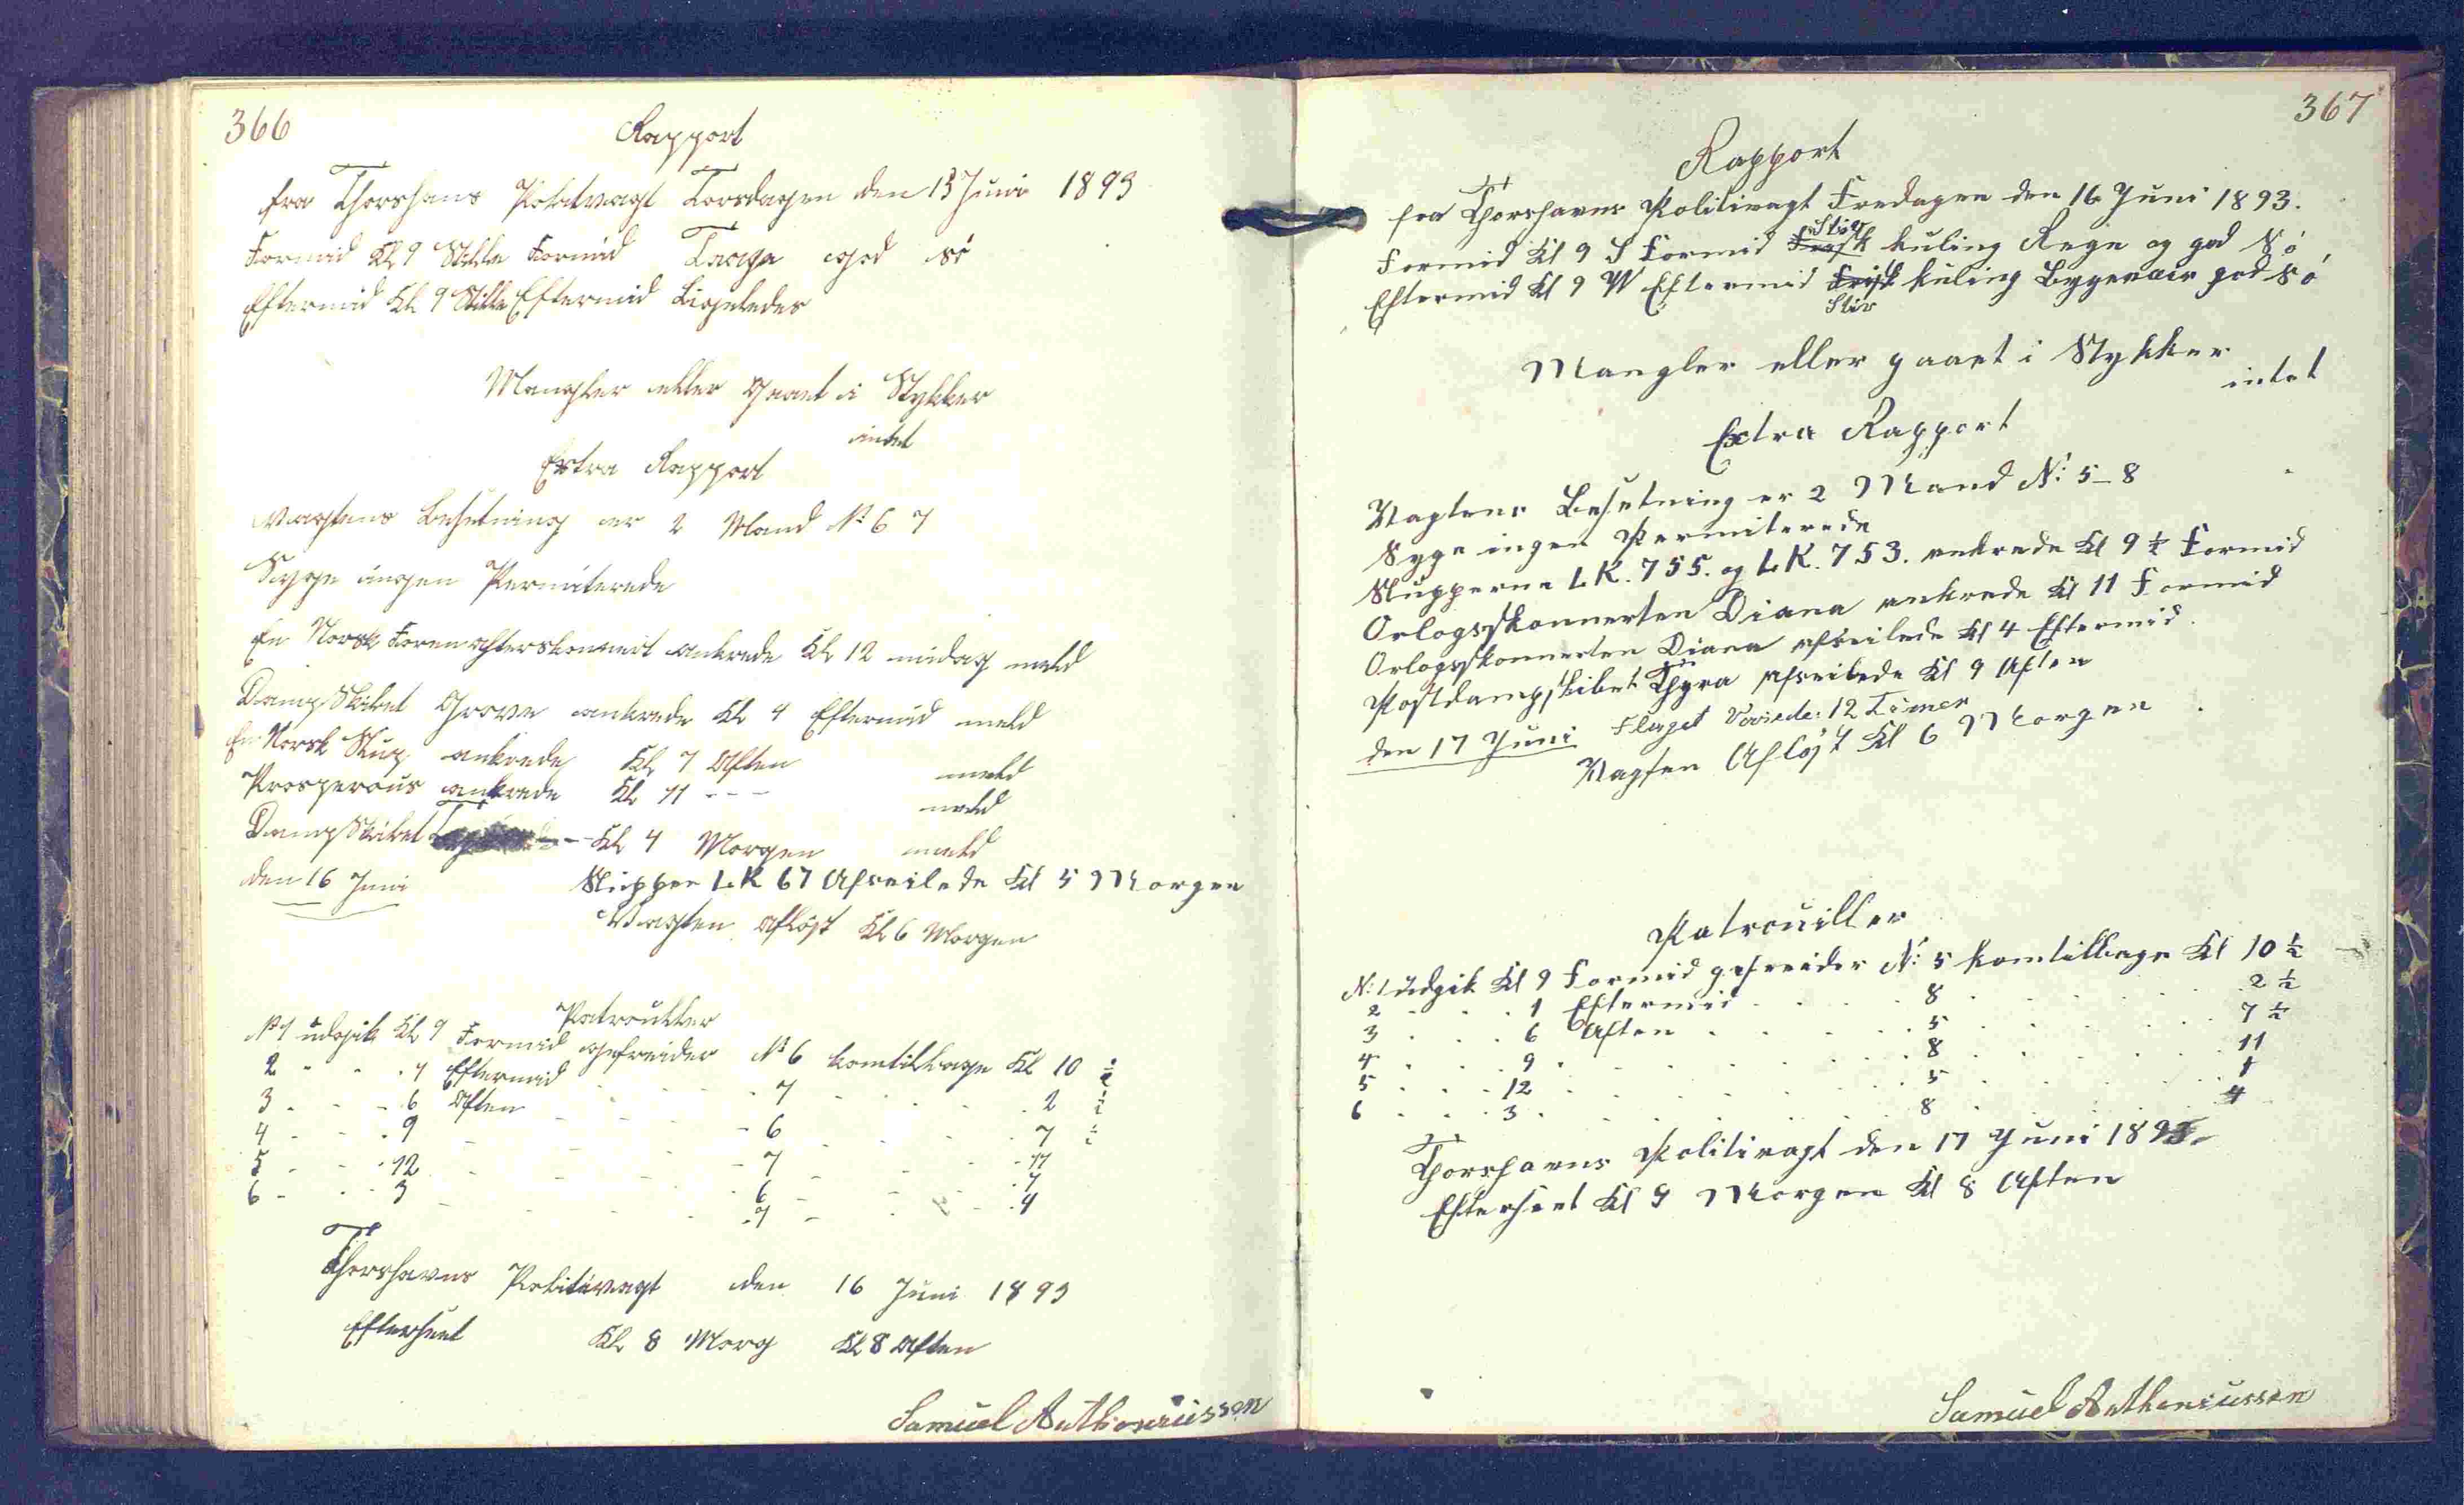 366
Rapport
fra Thorshans Politivagt Torsdagen den 15 Juni 1893
Formid Kl 9 Stille Formid Taage god sö
Eftermid Kl 9 Stille Eftermid Ligeledes
Mangler eller Gaaet i Stykker
intet
Extra Rapport
Vagtens Besetning er 2 Mand No 6 7
Syge ingen Permiterede
En Norsk Forenagterskonnert ankrede Kl 12 midag meld
DampSkibet Grove ankrede Kl 4 Eftermid meld
En Norsk Slup ankrede Kl 7 Aften meld
Prosperous ankrede Kl 11 - - - meld
DampSkibet - Kl 4 Morgen meld
den 16 Juni Sluppen LK 67 Afseilede Kl 5 Morgen
Vagten Aflöst Kl 6 Morgen
Patrouller
No 1 üdgik Kl 9 Formid gefreider No 6 komtilbage Kl 10 ½
2 - - . 1 Eftermid - - - 7 - - - . 2 ½
3 - - - 6 Aften - - - 6 - - - . 7 ½
4 - - . 9 - - - 7 - - - 11
5 - - . 12 - - - 6 - - - . 1
6 - - . 3 - - - . 7 - - - . 4
Thorshavns Politivagt den 16 Juni 1893
Efterseet Kl 8 Morg Kl 8 Aften
Samuel Anthoniussen
367
Rapport
fra Thorshavns Politivagt Fredagen den 16 Juni 1893.
Stiv
Formid Kl 9 S Formid Frisk kuling Regn og god Sö
Eftermid Kl 9 W Eftermid Frisk kuling Bygevær god Sö
Stiv
Mangler eller gaaet i Stykker
intet
Extra Rapport
Vagtens Besetning er 2 Mand No: 5_8
Syge ingen Permiterede
Slupperne LK. 755. og LK. 753. ankrede Kl 9 ½ Formid
Orlogsskonnerten Diana ankrede Kl 11 Formid
Orlogsskonnerten Diana afseilede Kl 4 Eftermid.
Postdampskibet Thyra Afseilede Kl 9 Aften
Flaget Vaiede: 12 Timer
den 17 Juni Vagten Aflöst Kl 6 Morgen
Patrouiller
No: 1 üdgik Kl 9 Formid gefreider No: 5 komtilbage Kl 10 ½
2 - . . . 1 Eftermid . . . . 8 . . . . . 2 ½
3 . . . 6 Aften . . . . 5 . . . . . 7 ½
4 . . . 9 . . . . . 8 . . . . . 11
5 . . . 12 . . . . . 5 . . . . . 1
6 . . . 3 . . . . . 8 . . . . . 4
Thorshavns Politivagt den 17 Juni 1893.
Efterseet Kl 9 Morgen Kl 8 Aften
Samuel Anthoniussen